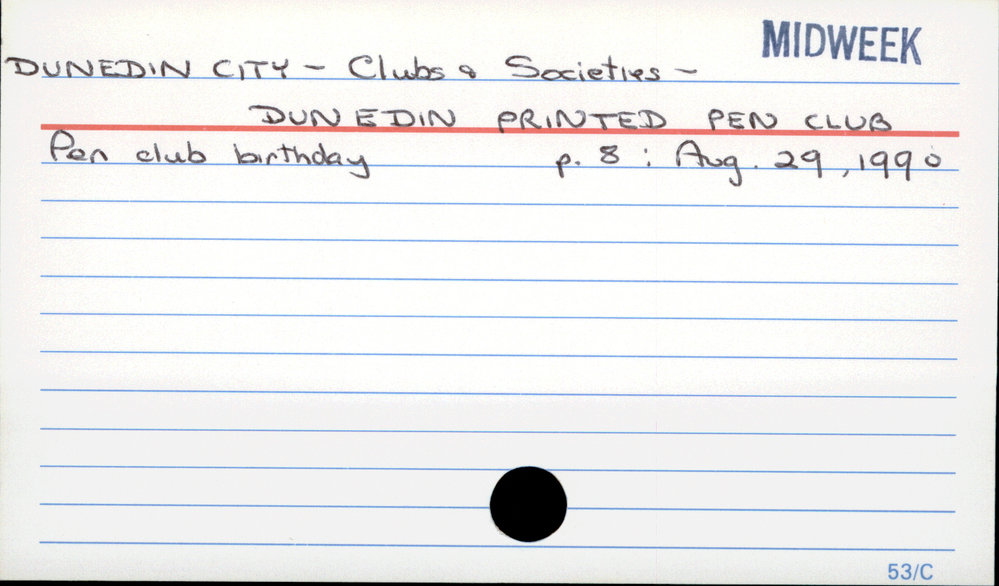 MIDWEEK
DUNEDIN CITY - Clubs & Societies -
DUNEDIN PRINTED PEN CLUB
Pen club birthday p. 8 : Aug. 29, 1990
53/C